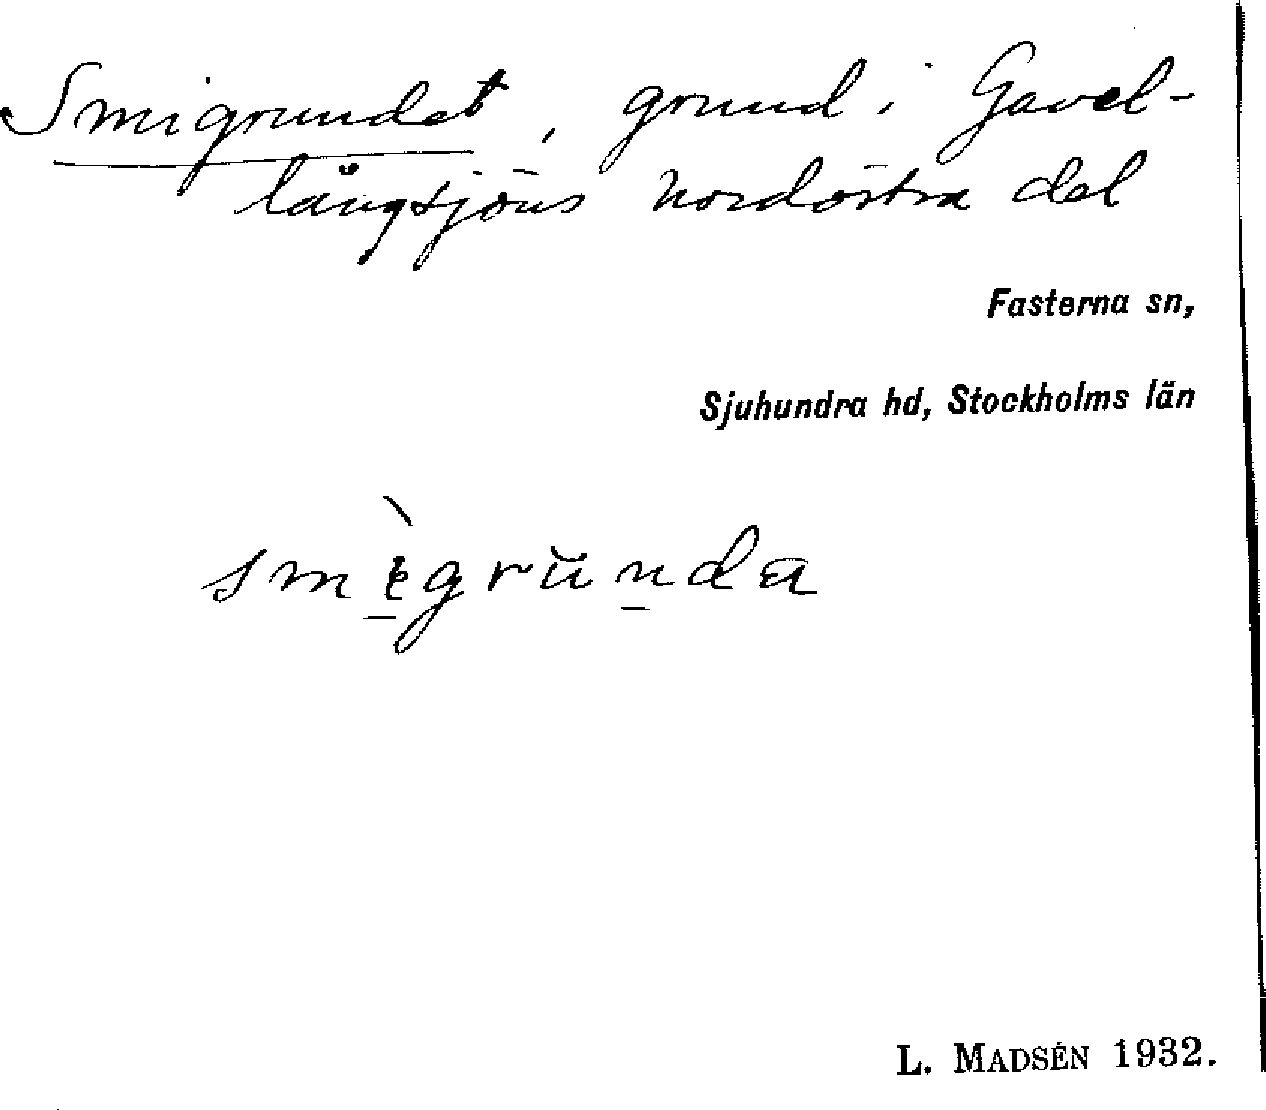 Smigrundet, grund i Gavel-
långsjöns nordöstra del
Fasterna sn,
Sjuhundra hd, Stockholms län
L. MADSÉN 1932.